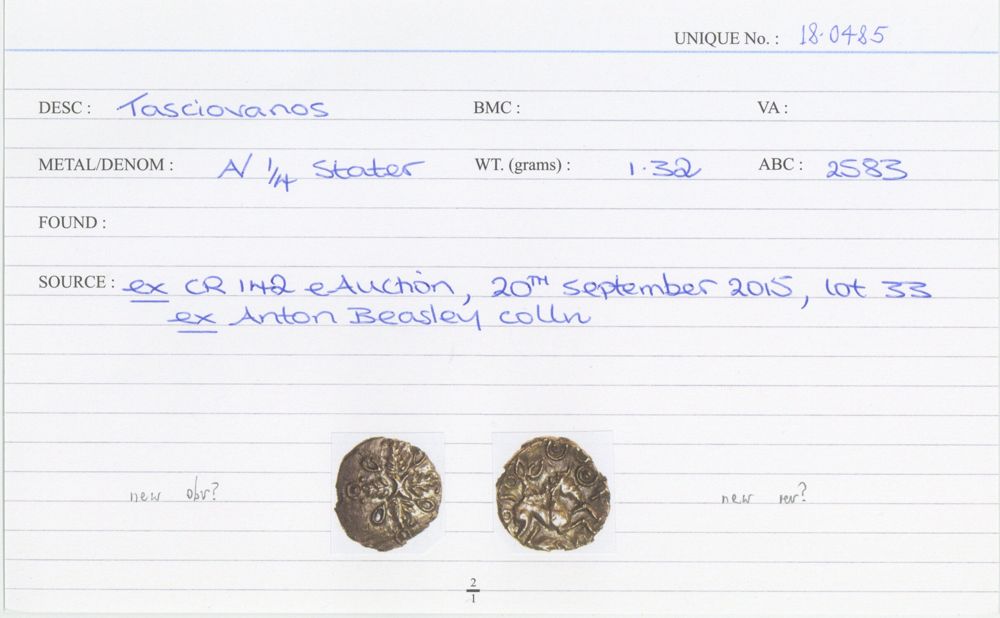 UNIQUE No. : 18·0485
DESC : Tasciovanos BMC : VA :
METAL/DENOM : A/ 1/4 Stater WT. (grams) : 1·32 ABC : 2583
FOUND :
SOURCE : ex CR 142 eAuction, 20TH September 2015, lot 33
ex Anton Beasley colln
new obv? new rev?
2
1